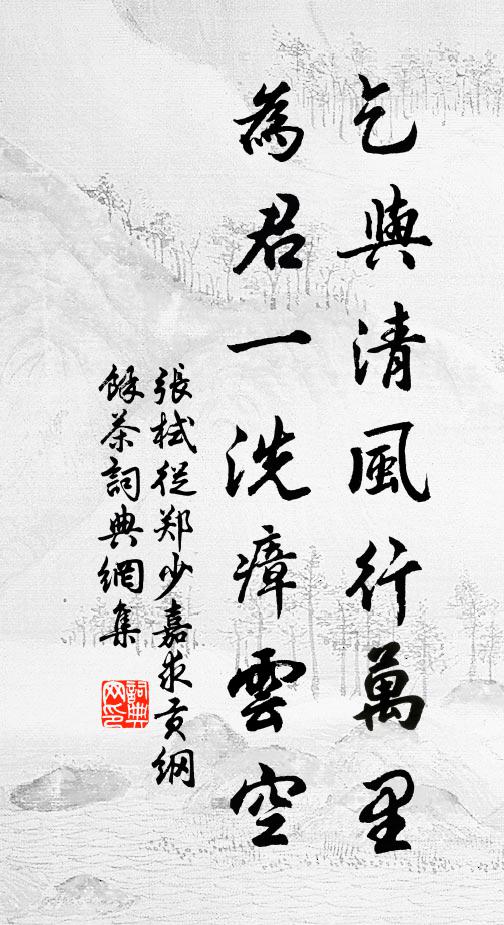 乞與清風行萬里
為君一洗瘴雲空
張栻從郑少嘉求贡綱
餘茶詞典網集
詞典
网印